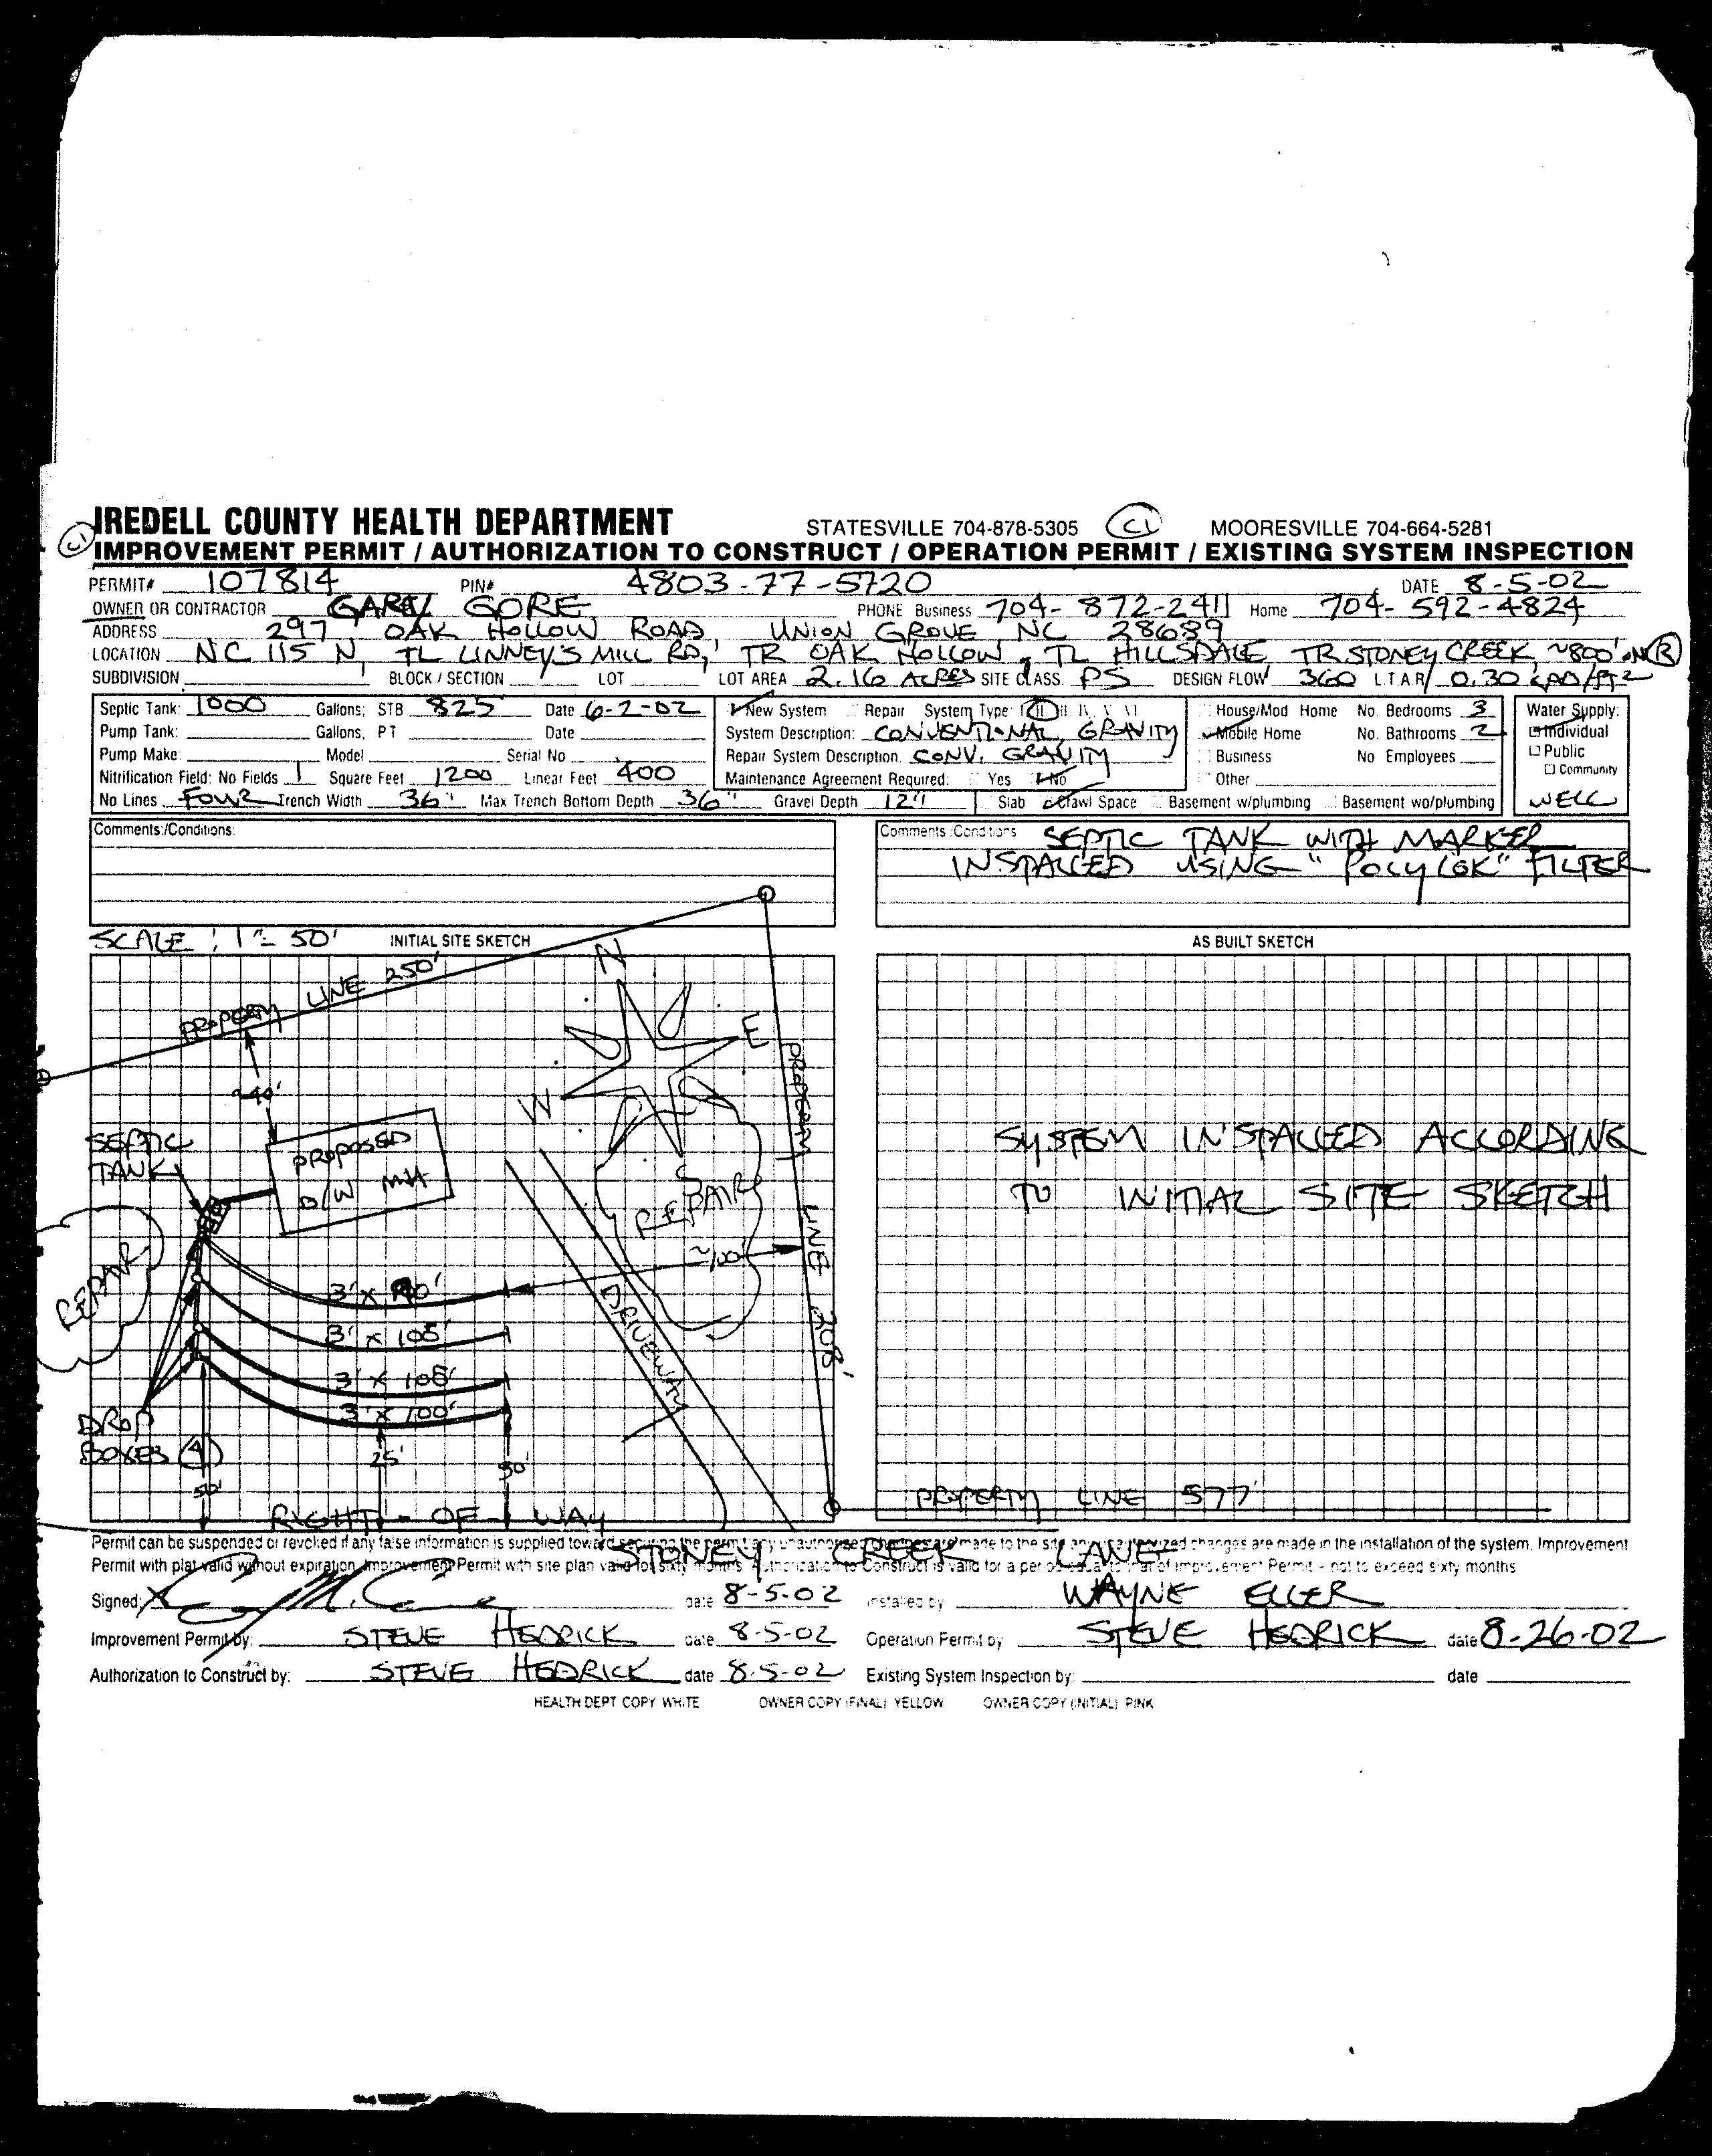 IREDELL COUNTY HEALTH DEPARTMENT STATESVILLE 704-878-5305 C1 MOORESVILLE 704-664-5281
C1 IMPROVEMENT PERMIT / AUTHORIZATION TO CONSTRUCT / OPERATION PERMIT / EXISTING SYSTEM INSPECTION
PERMIT# 107814 PIN# 4803-77-5720 DATE 8-5-02
OWNER OR CONTRACTOR GARY GORE PHONE Business 704-872-2411 Home 704-592-4824
ADDRESS 297 OAK HOLLOW ROAD, UNION GROVE, NC 28689
LOCATION NC 115 N, TL LINNEY'S MILL RD, TR OAK HOLLOW, TL HILLSDALE, TR STONEY CREEK, ~800' ON R
SUBDIVISION BLOCK / SECTION LOT LOT AREA 2.16 ACRES SITE CLASS PS DESIGN FLOW 360 L.T.A.R. 0.30 GAD/FT2
Septic Tank: 1000 Gallons; STB 825 Date 6-2-02 New System Repair System Type I II III IV V VI House/Mod Home No. Bedrooms 3 Water Supply:
Pump Tank: Gallons, PT Date System Description: CONVENTIONAL GRAVITY Mobile Home No. Bathrooms 2 Individual
Pump Make: Model Serial No Repair System Description CONV. GRAVITY Business No Employees Public
Nitrification Field: No Fields 1 Square Feet 1200 Linear Feet 400 Maintenance Agreement Required: Yes No Other Community
No Lines FOUR Trench Width 36" Max Trench Bottom Depth 36" Gravel Depth 12" Slab Crawl Space Basement w/plumbing Basement wo/plumbing WELL
Comments:/Conditions:
Comments:/Conditions SEPTIC TANK WITH MARKER
INSTALLED USING "POLYLOK" FILTER
SCALE: 1"= 50' INITIAL SITE SKETCH
AS BUILT SKETCH
PROPERTY LINE 250'
N
E
W
S
~40'
PROPERTY LINE 208'
SEPTIC
TANK
PROPOSED
D/W MH
REPAIR
REPAIR
~100'
3' X 90'
3' X 105'
3' X 105'
3' X 100'
DRIVEWAY
DROP
BOXES 4
50'
25'
50'
RIGHT-OF-WAY
STONEY CREEK LANE
PROPERTY LINE 577'
SYSTEM INSTALLED ACCORDING
TO INITIAL SITE SKETCH
Permit can be suspended or revoked if any false information is supplied toward securing the permit, any unauthorized changes are made to the site any unauthorized changes are made in the installation of the system. Improvement
Permit with plat valid without expiration, Improvement Permit with site plan valid for sixty months. Authorization to Construct is valid for a period equal to that of Improvement Permit - not to exceed sixty months
Signed: X date 8-5-02 Installed by WAYNE ELLER
Improvement Permit by: STEVE HEDRICK date 8-5-02 Operation Permit by STEVE HEDRICK date 8-26-02
Authorization to Construct by: STEVE HEDRICK date 8-5-02 Existing System Inspection by: date
HEALTH DEPT COPY WHITE OWNER COPY (FINAL) YELLOW OWNER COPY (INITIAL) PINK